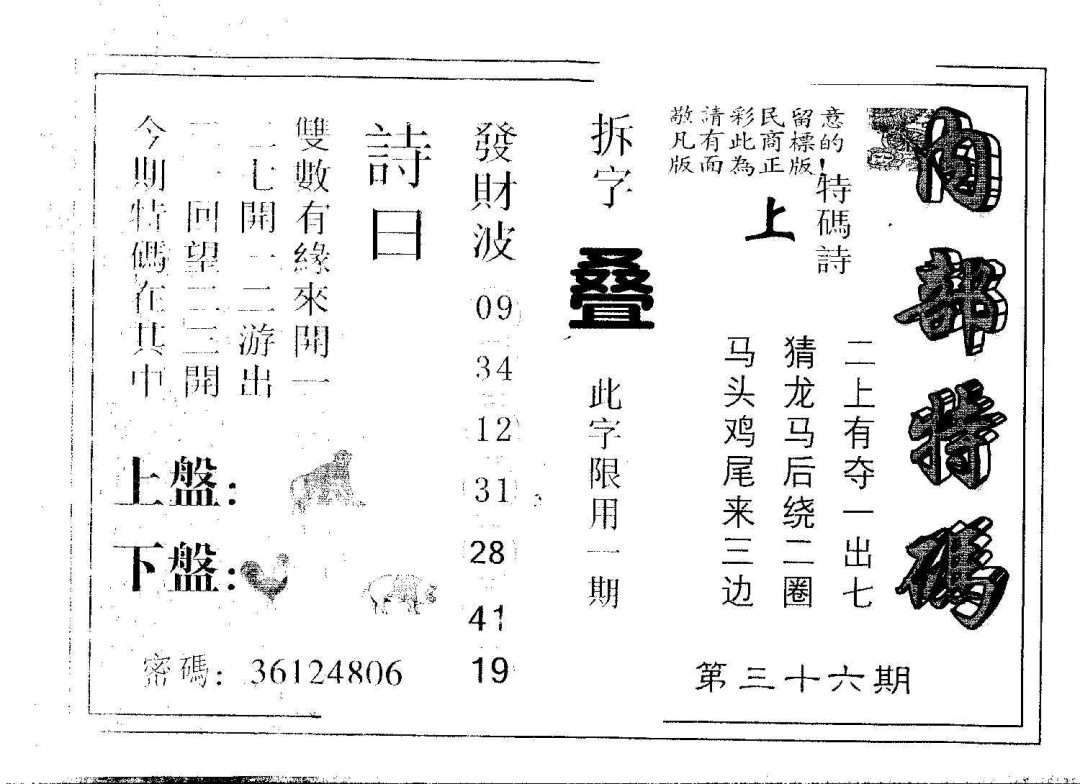 內部特碼
敬請彩民留意
凡有此商標的
版面為正版!
特碼詩
上
二上有夺一出七
猜龙马后绕二圈
马头鸡尾来三边
第三十六期
拆字
叠
此字限用一期
發財波
09
34
12
31
28
41
19
詩曰
雙數有緣來開一
二七開一二游出
回望二三開
今期特碼在其中
上盤:
下盤:
密碼: 36124806